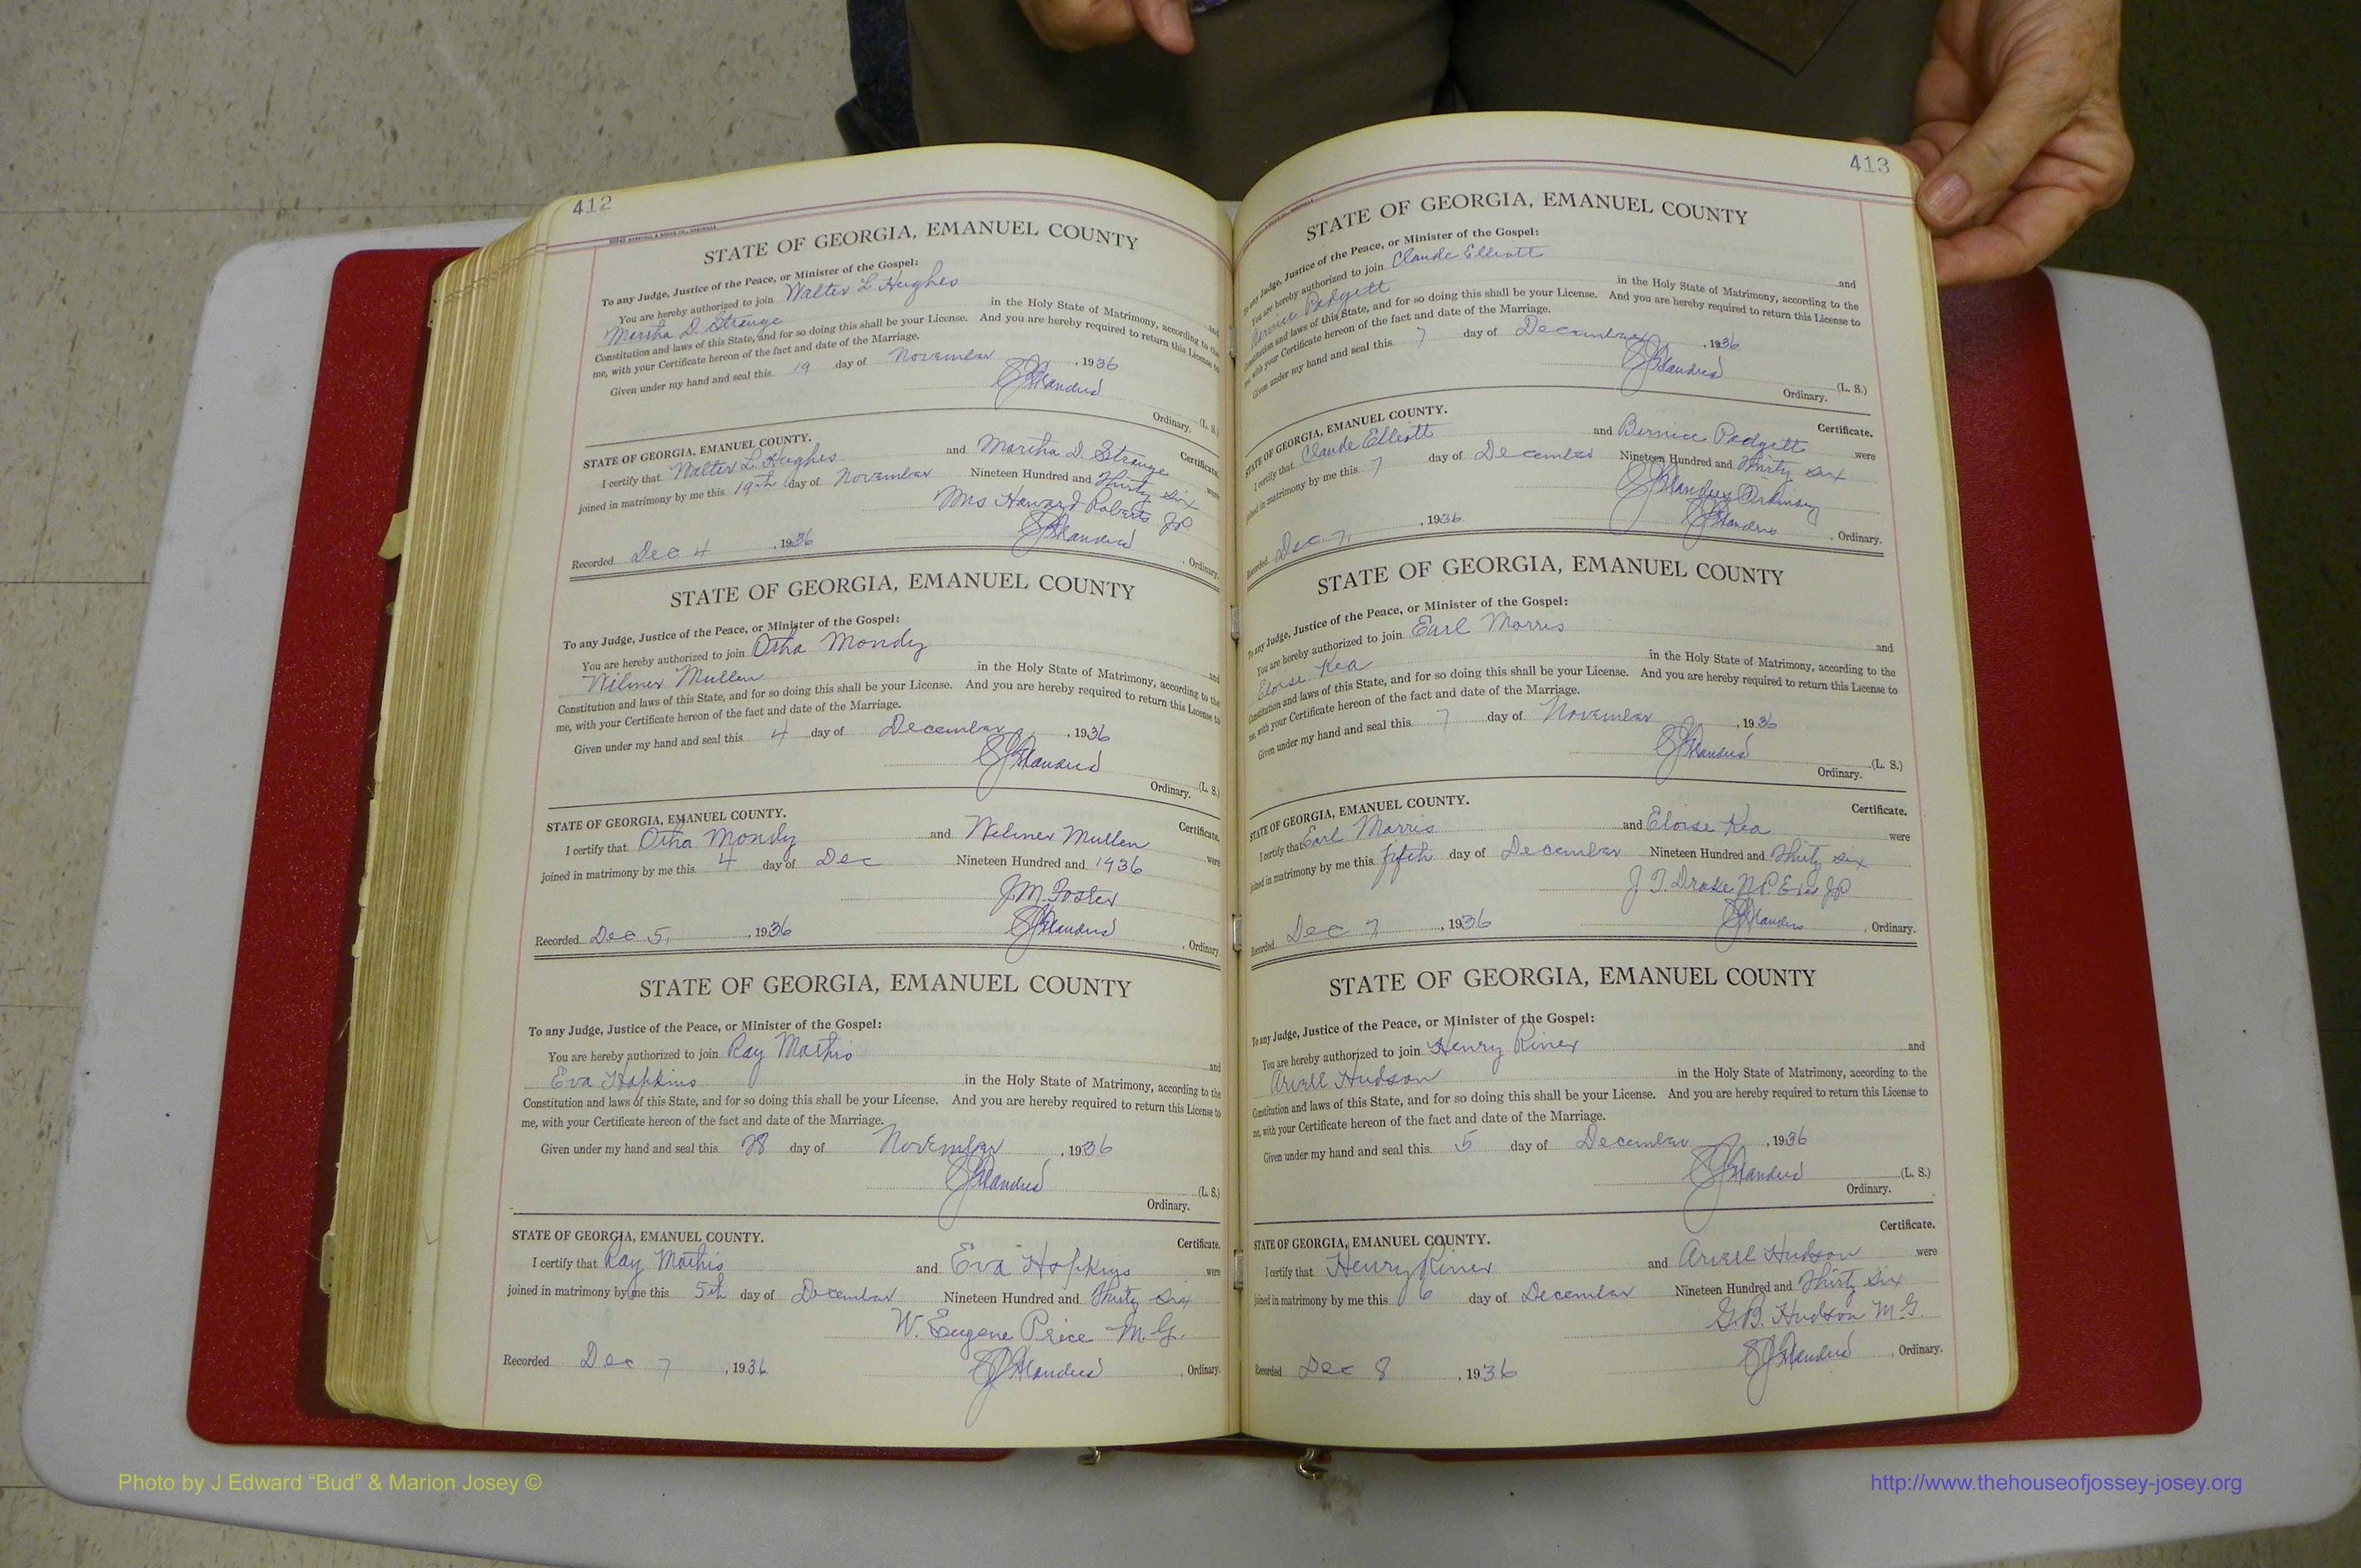 412
STATE OF GEORGIA, EMANUEL COUNTY
To any Judge, Justice of the Peace, or Minister of the Gospel:
You are hereby authorized to join Walter L Hughes and
Martha D. Strange in the Holy State of Matrimony, according to the
Constitution and laws of this State, and for so doing this shall be your License. And you are hereby required to return this License to
me, with your Certificate hereon of the fact and date of the Marriage.
Given under my hand and seal this 19 day of November, 1936
(L. S.)
Ordinary.
STATE OF GEORGIA, EMANUEL COUNTY. Certificate.
I certify that Walter L. Hughes and Martha D. Strange were
joined in matrimony by me this 19th day of November Nineteen Hundred and Thirty six
Mrs Howard Roberts JP
Recorded Dec 4, 1936 , Ordinary.
STATE OF GEORGIA, EMANUEL COUNTY
To any Judge, Justice of the Peace, or Minister of the Gospel:
You are hereby authorized to join Otha Mondy and
Wilmer Mullen in the Holy State of Matrimony, according to the
Constitution and laws of this State, and for so doing this shall be your License. And you are hereby required to return this License to
me, with your Certificate hereon of the fact and date of the Marriage.
Given under my hand and seal this 4 day of December, 1936
(L. S.)
Ordinary.
STATE OF GEORGIA, EMANUEL COUNTY. Certificate.
I certify that Otha Mondy and Wilmer Mullen were
joined in matrimony by me this 4 day of Dec Nineteen Hundred and 1936
J.M. Foster
Recorded Dec 5, , 1936 , Ordinary.
STATE OF GEORGIA, EMANUEL COUNTY
To any Judge, Justice of the Peace, or Minister of the Gospel:
You are hereby authorized to join Ray Mathis and
Eva Hopkins in the Holy State of Matrimony, according to the
Constitution and laws of this State, and for so doing this shall be your License. And you are hereby required to return this License to
me, with your Certificate hereon of the fact and date of the Marriage.
Given under my hand and seal this 28 day of November, 1936
(L. S.)
Ordinary.
STATE OF GEORGIA, EMANUEL COUNTY. Certificate.
I certify that Ray Mathis and Eva Hopkins were
joined in matrimony by me this 5th day of December Nineteen Hundred and Thirty Six
W. Eugene Price M.G.
Recorded Dec 7, 1936 , Ordinary.
413
STATE OF GEORGIA, EMANUEL COUNTY
To any Judge, Justice of the Peace, or Minister of the Gospel:
You are hereby authorized to join Claude Elliott and
Bernice Padgett in the Holy State of Matrimony, according to the
Constitution and laws of this State, and for so doing this shall be your License. And you are hereby required to return this License to
me, with your Certificate hereon of the fact and date of the Marriage.
Given under my hand and seal this 7 day of December, 1936
(L. S.)
Ordinary.
STATE OF GEORGIA, EMANUEL COUNTY. Certificate.
I certify that Claude Elliott and Bernice Padgett were
joined in matrimony by me this 7 day of December Nineteen Hundred and Thirty six
Recorded Dec 7, , 1936 , Ordinary.
STATE OF GEORGIA, EMANUEL COUNTY
To any Judge, Justice of the Peace, or Minister of the Gospel:
You are hereby authorized to join Earl Morris and
Eloise Kea in the Holy State of Matrimony, according to the
Constitution and laws of this State, and for so doing this shall be your License. And you are hereby required to return this License to
me, with your Certificate hereon of the fact and date of the Marriage.
Given under my hand and seal this 7 day of November, 1936
(L. S.)
Ordinary.
STATE OF GEORGIA, EMANUEL COUNTY. Certificate.
I certify that Earl Morris and Eloise Kea were
joined in matrimony by me this fifth day of December Nineteen Hundred and Thirty six
J. T. Drake N.P. Exo JP
Recorded Dec 7, 1936 , Ordinary.
STATE OF GEORGIA, EMANUEL COUNTY
To any Judge, Justice of the Peace, or Minister of the Gospel:
You are hereby authorized to join Henry Riner and
Arvell Hudson in the Holy State of Matrimony, according to the
Constitution and laws of this State, and for so doing this shall be your License. And you are hereby required to return this License to
me, with your Certificate hereon of the fact and date of the Marriage.
Given under my hand and seal this 5 day of December, 1936
(L. S.)
Ordinary.
STATE OF GEORGIA, EMANUEL COUNTY. Certificate.
I certify that Henry Riner and Arvell Hudson were
joined in matrimony by me this 6 day of December Nineteen Hundred and Thirty Six
G.B. Hudson M.G.
Recorded Dec 8, 1936 , Ordinary.
Photo by J Edward “Bud” & Marion Josey ©
http://www.thehouseofjossey-josey.org